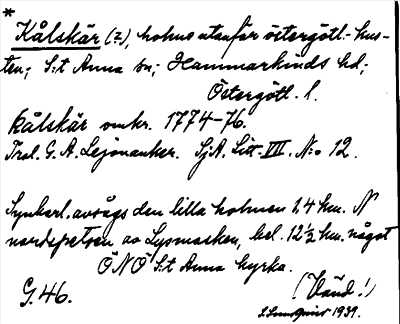 *
Kålskär (?), holme utanför östergötl.-kus-
ten; S:t Anna sn; Hammarkinds hd;
Östergötl. l.
kålskär omkr. 1774-76.
Trol. G. A. Lejonanker. SjA. Litt. VII. N:o 12.
Synkarl. avsågs den lilla holmen 1,4 km. N
nordspetsen av Lysmasken, bel. 12½ km. något
ÖNÖ S:t Anna kyrka.
G. 46. (Vänd!)
1939.